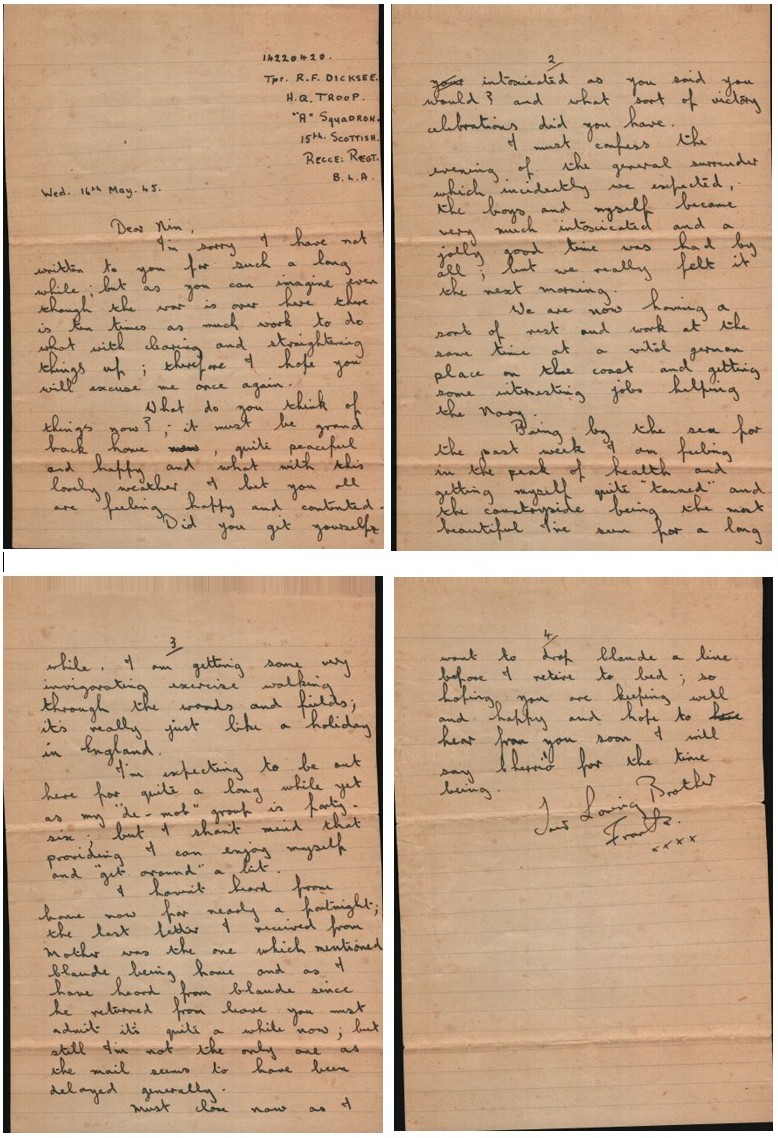 14220420.
Tpr. R.F. DICKSEE.
H.Q. TROOP.
"A" SQUADRON.
15th. SCOTTISH.
RECCE: REGT.
B.L.A.
Wed. 16th May. 45.
Dear Nin,
I'm sorry I have not
written to you for such a long
while; but as you can imagine even
though the war is over here there
is ten times as much work to do
what with clearing and straightening
things up; therefore I hope you
will excuse me once again.
What do you think of
things now?; it must be grand
back home now, quite peaceful
and happy and what with this
lovely weather I bet you all
are feeling happy and contented.
Did you get yourselfs
2
your intoxicated as you said you
would? and what sort of victory
celebrations did you have.
I must confess the
evening of the general surrender
which incidently we expected,
the boys and myself became
very much intoxicated and a
jolly good time was had by
all; but we really felt it
the next morning.
We are now having a
sort of rest and work at the
same time at a vital german
place on the coast and getting
some interesting jobs helping
the Navy.
Being by the sea for
the past week I am feeling
in the peak of health and
getting myself quite "tanned" and
the countryside being the most
beautiful I've seen for a long
3
while. I am getting some very
invigorating exercise walking
through the woods and fields;
it's really just like a holiday
in England.
I'm expecting to be out
here for quite a long while yet
as my "de-mob" group is forty-
six; but I shant mind that
providing I can enjoy myself
and "get around" a bit.
I havn't heard from
home now for nearly a fortnight;
the last letter I received from
Mother was the one which mentioned
Claude being home and as I
have heard from Claude since
he returned from leave you must
admit it's quite a while now; but
still I'm not the only one as
the mail seems to have been
delayed generally.
Must close now as I
4
want to drop Claude a line
before I retire to bed; so
hoping you are keeping well
and happy and hope to have
hear from you soon I will
say Cherrio for the time
being.
Your Loving Brother
Frank.
xxxx